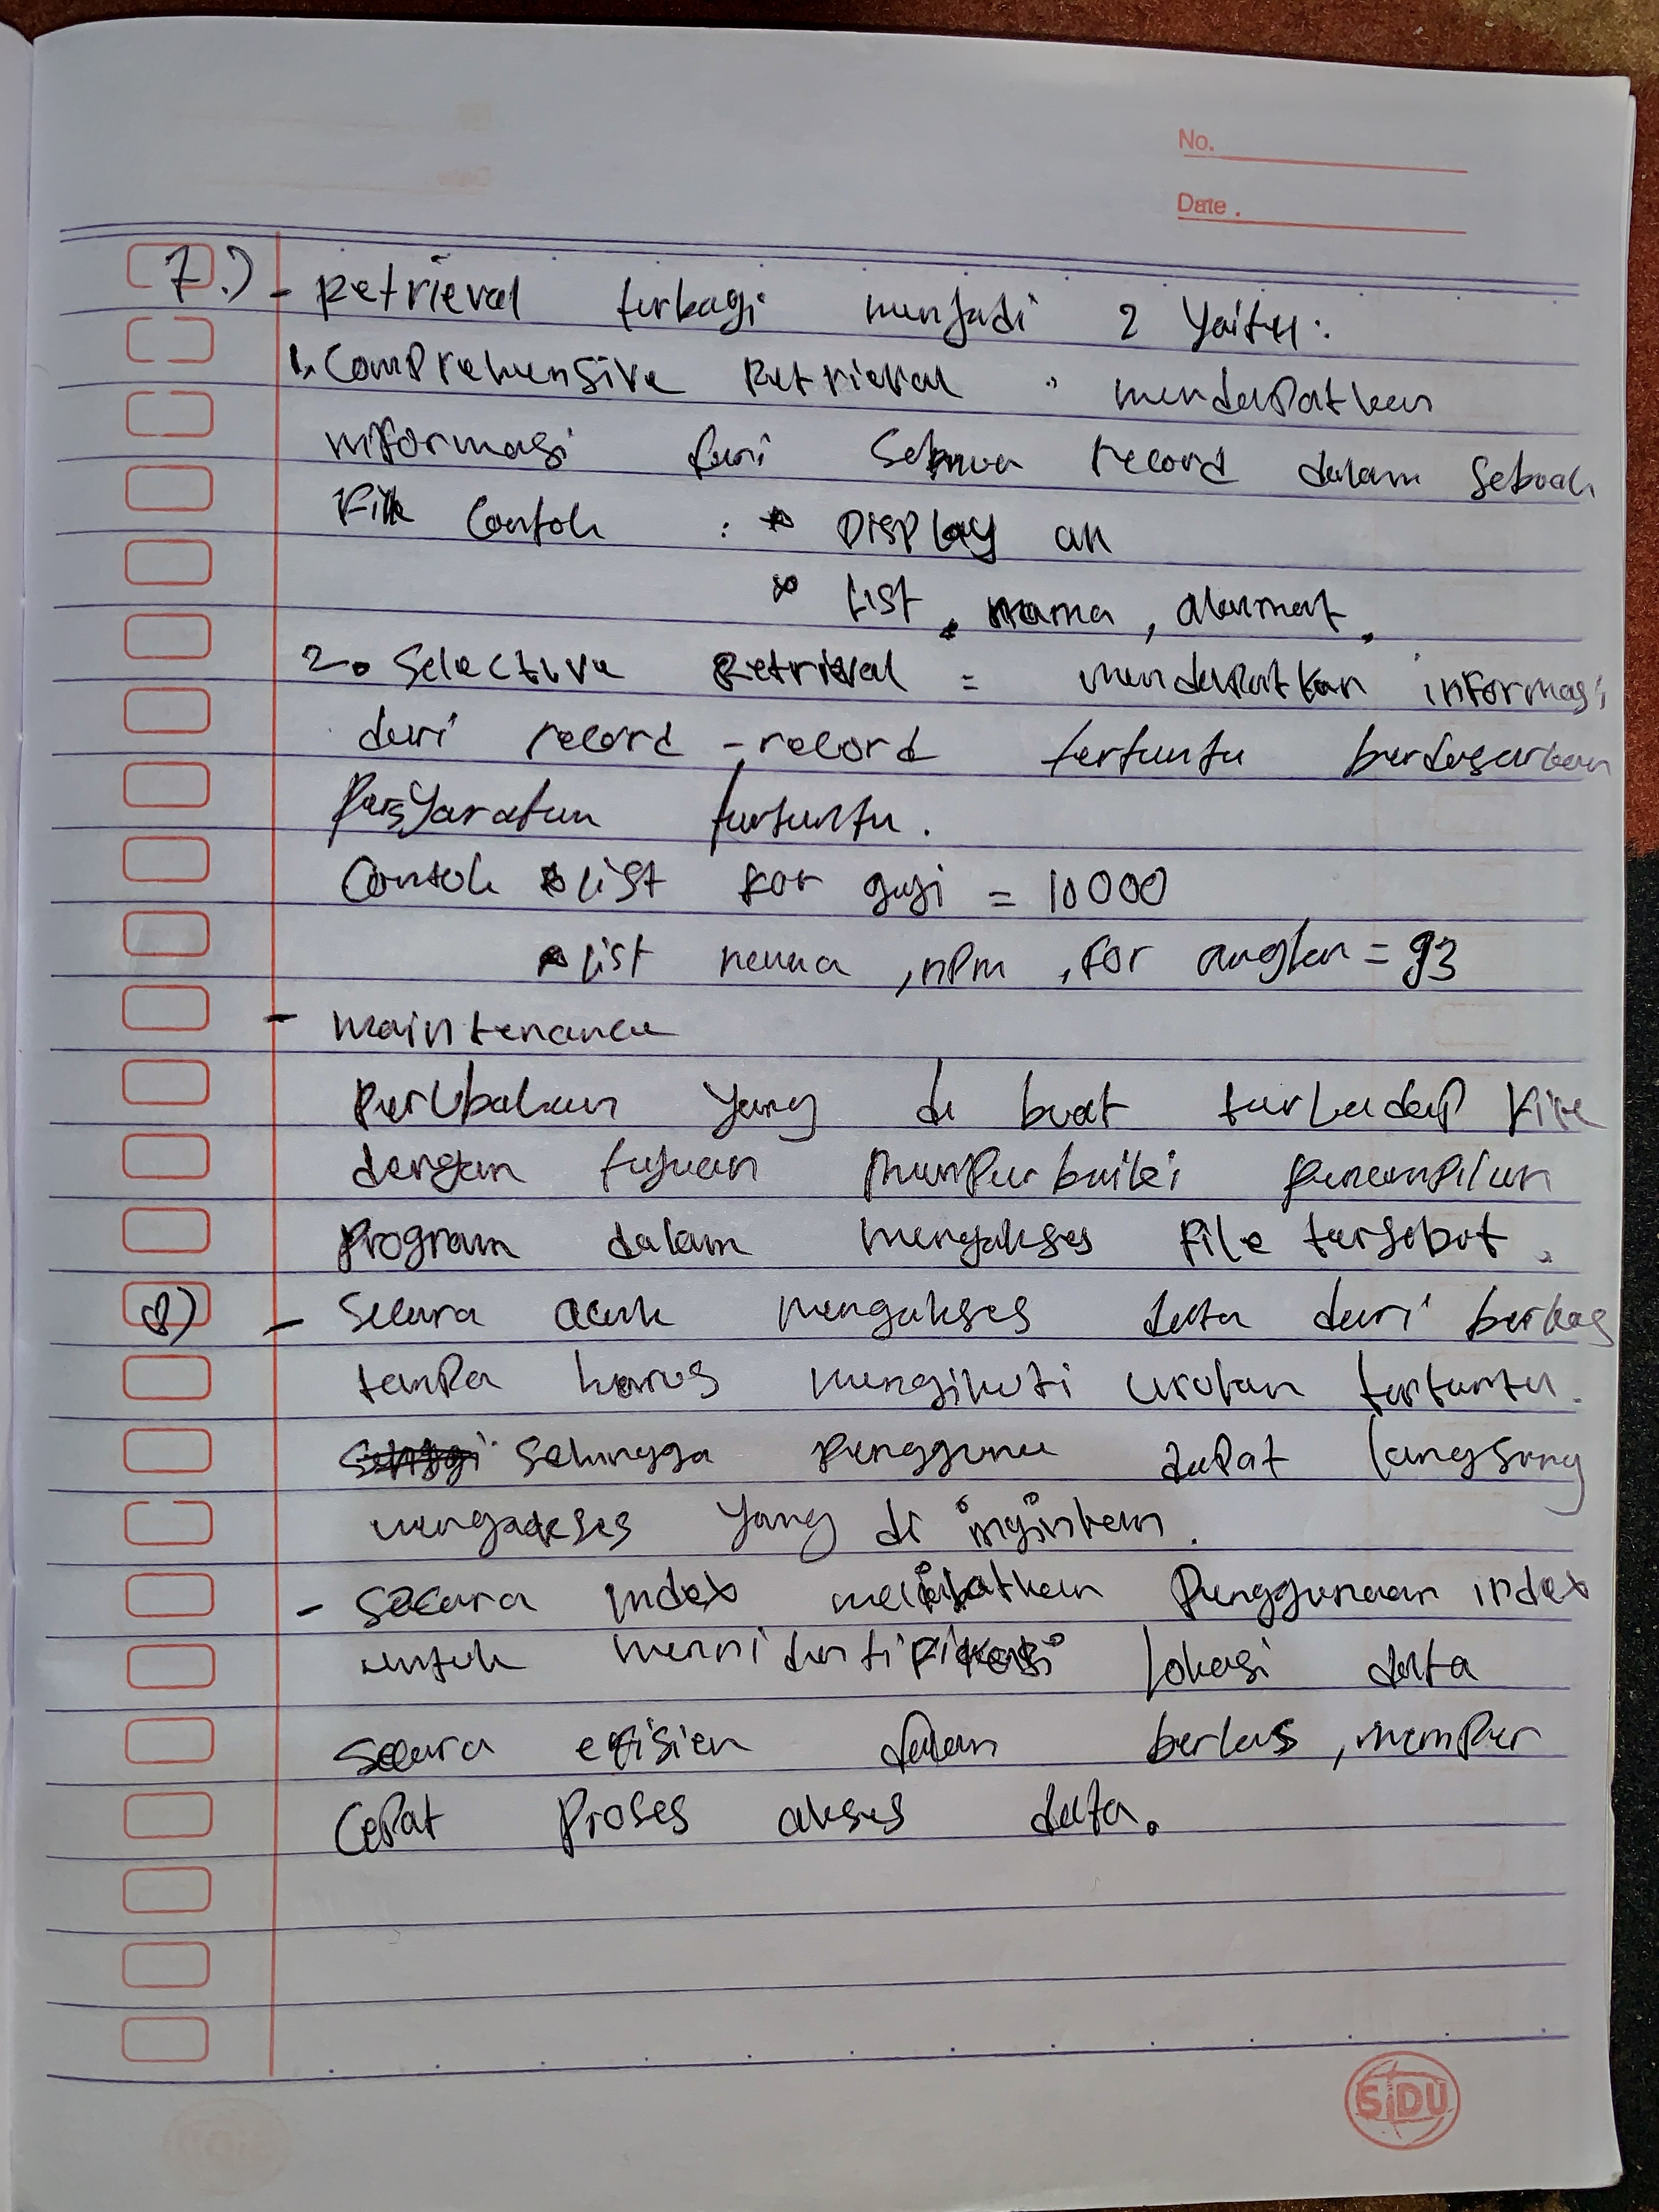 No.
Date.
7.) - Retrieval terbagi menjadi 2 yaitu :
1. Comprehensive Retrieval : mendapatkan
informasi dari semua record dalam sebuah
File Contoh : * Display all
* List, nama, alamat.
2. Selective Retrieval = mendapatkan informasi
dari record - record tertentu berdasarkan
Persyaratan tertentu.
Contoh * List for gaji = 10000
* List nama, npm, for angkn = 93
- maintenance
Perubahan yang di buat terhadap File
dengan tujuan memperbaiki penampilan
program dalam mengakses File tersebut.
8) - Secara acak mengakses data dari berkas
tanpa harus mengikuti urutan tertentu.
sehingga pengguna dapat langsung
mengakses yang di inginkan.
- Secara index melibatkan Penggunaan index
untuk mengidentifikasi lokasi data
secara efisien dalam berkas, memper
cepat Proses akses data.
SiDU